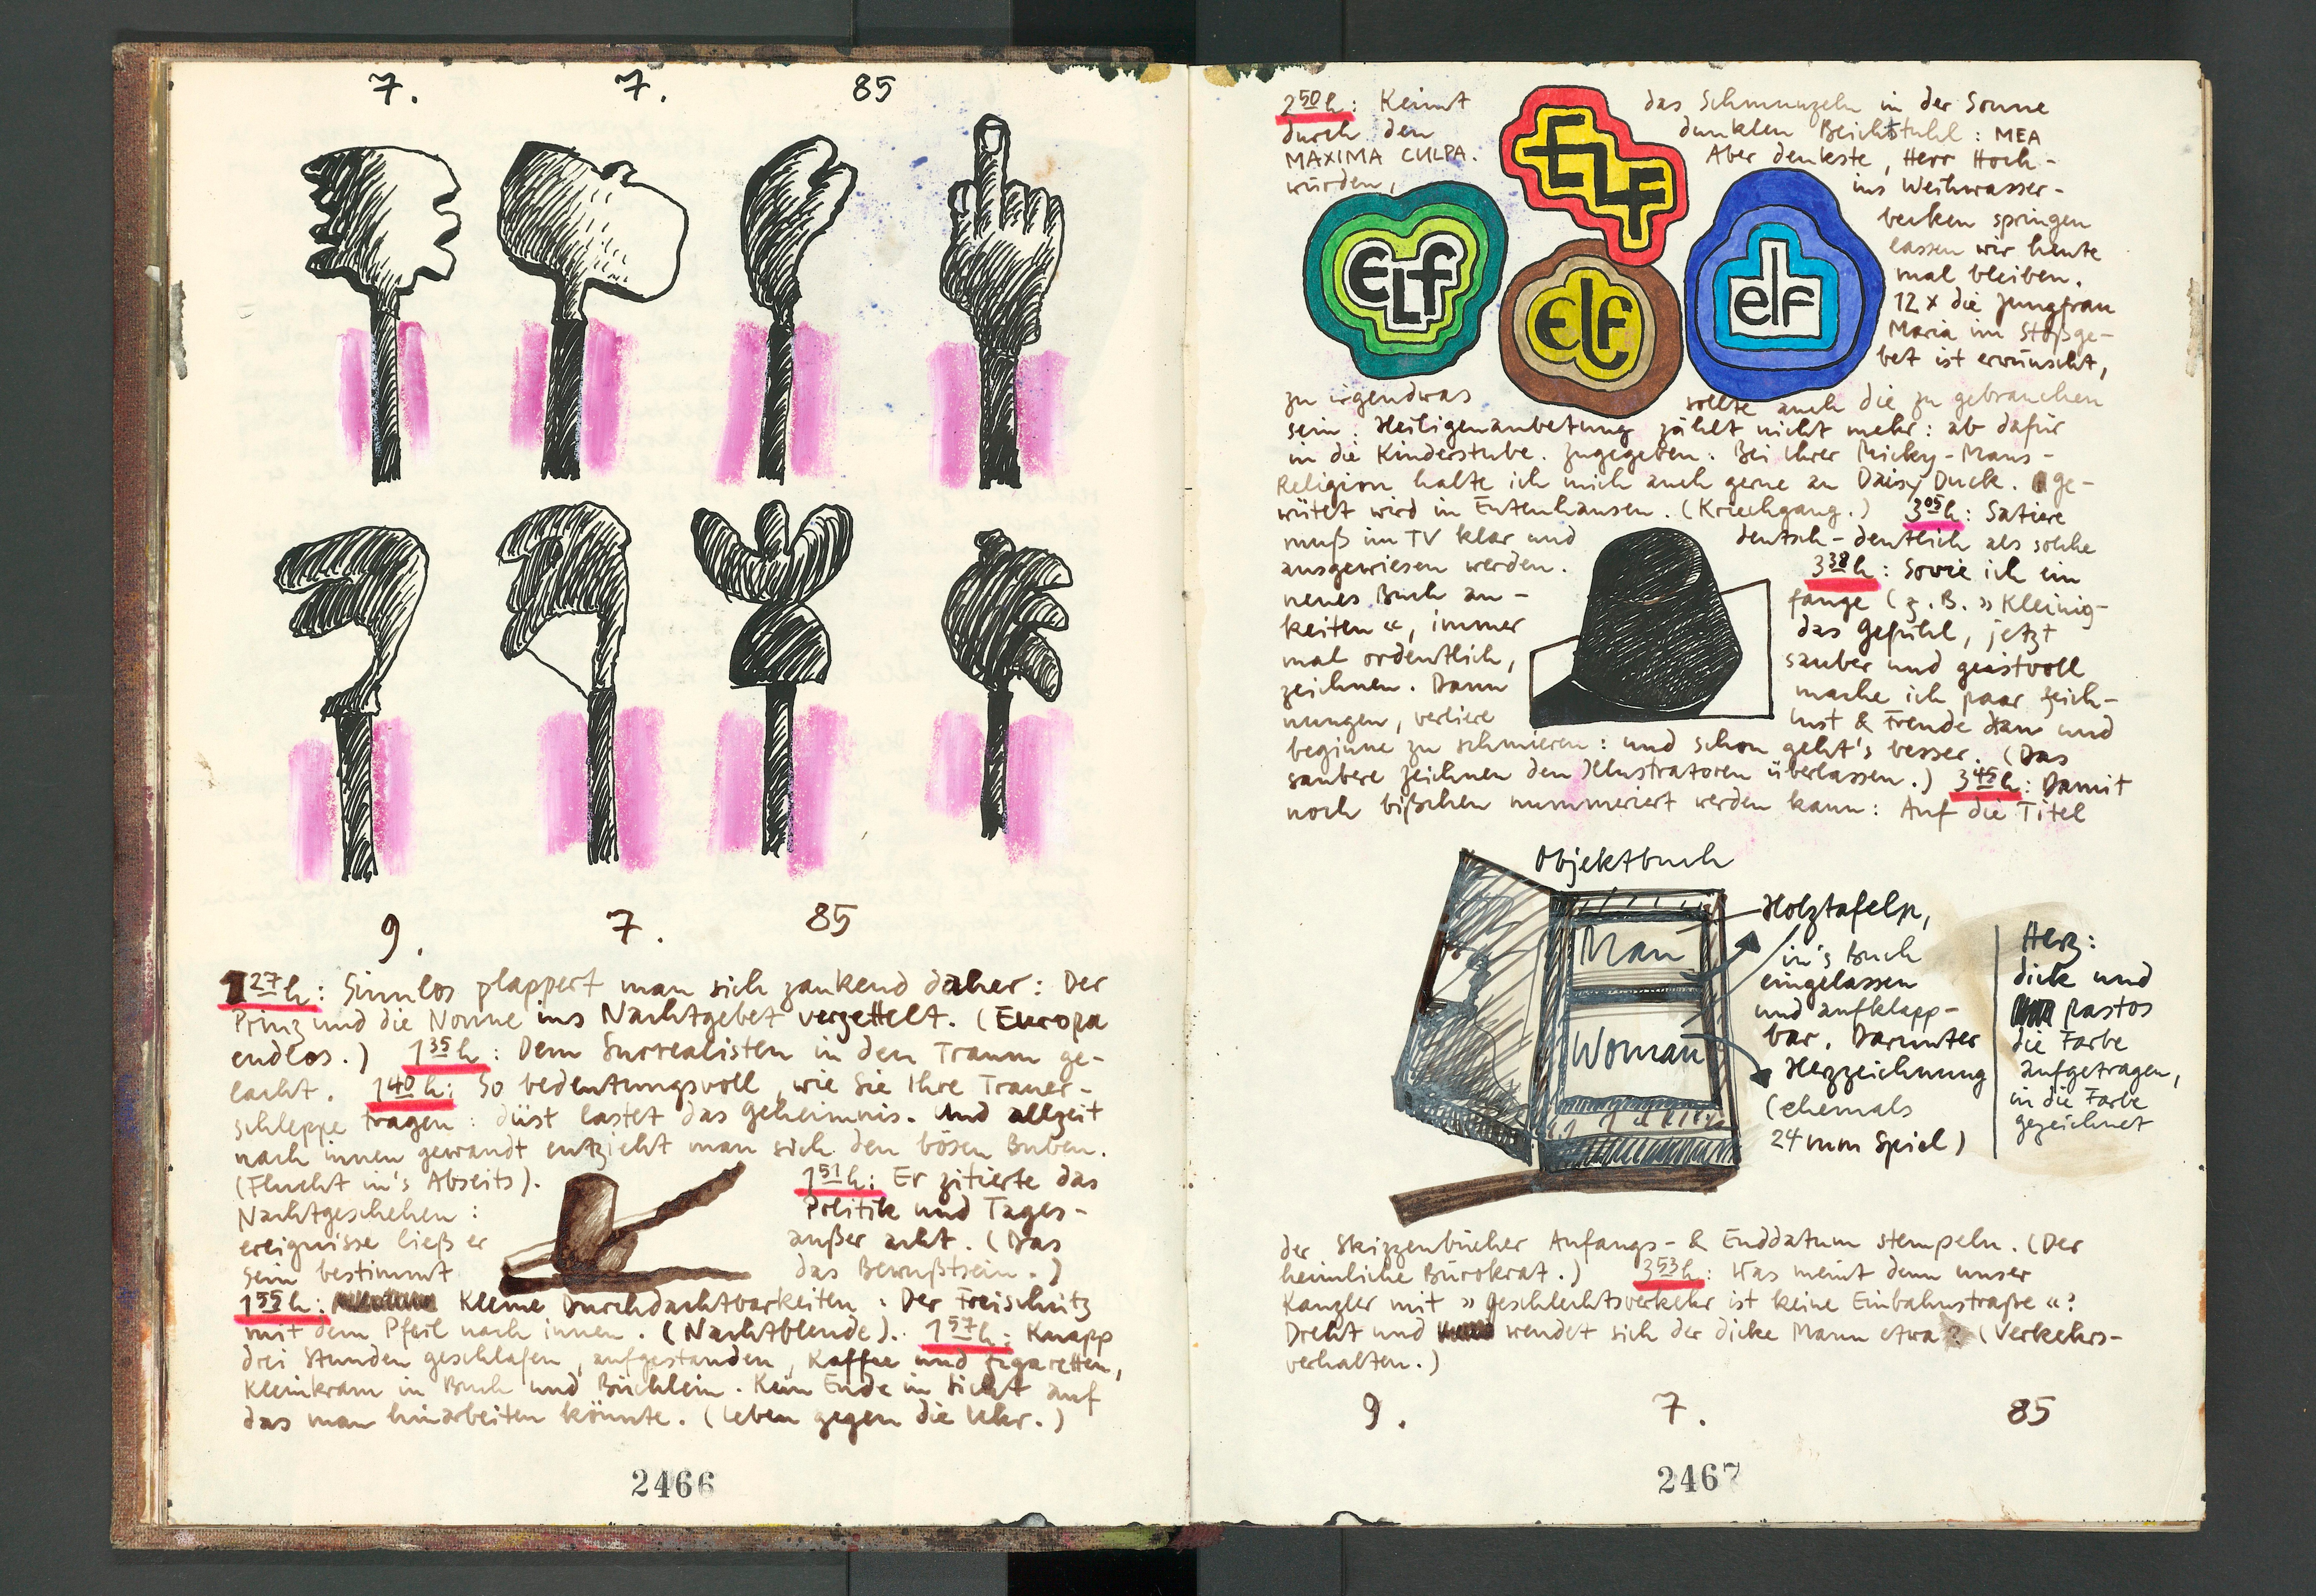 7. 7. 85
9. 7. 85
1 27 h: Sinnlos plappert man sich zankend daher: Der
Prinz und die Nonne ins Nachtgebet verzettelt. (Europa
endlos.) 1 35 h: Dem Surrealisten in den Traum ge-
lacht. 1 40 h: So bedeutungsvoll, wie Sie Ihre Trauer-
schleppe tragen: düst lastet das Geheimnis. Und allzeit
nach innen gewandt entzieht man sich den bösen Buben.
(Flucht in's Abseits). 1 51 h: Er zitierte das
Nachtgeschehen: Politik und Tages-
ereignisse ließ er außer acht. (Das
Sein bestimmt das Bewußtsein.)
1 55 h: Kleine Durchdachtbarkeiten: Der Freischütz
mit dem Pfeil nach innen. (Nachtblende). 1 57 h: Knapp
drei Stunden geschlafen, aufgestanden, Kaffee und Zigaretten,
Kleinkram in Buch und Büchlein. Kein Ende in Sicht auf
das man hinarbeiten könnte. (Leben gegen die Uhr.)
2466
2 50 h: Keimt das Schmunzeln in der Sonne
durch den dunklen Beichtstuhl: MEA
MAXIMA CULPA. Aber denkste, Herr Hoch-
würden, ins Weihwasser-
becken springen
lassen wir heute
mal bleiben.
12 x die Jungfrau
Maria im Stoßge-
bet ist erwünscht,
ELF
ELF
elf
elf
zu irgendwas sollte auch die zu gebrauchen
sein: Heiligenanbetung zählt nicht mehr: ab dafür
in die Kinderstube. Zugegeben: Bei Ihrer Micky-Maus-
Religion halte ich mich auch gerne an Daisy Duck. ge-
wütet wird in Entenhausen. (Kriechgang.) 3 05 h: Satiere
muß im TV klar und deutsch-deutlich als solche
ausgewiesen werden. 3 38 h: Sowie ich ein
neues Buch an- fange (z.B. »Kleinig-
keiten«, immer das Gefühl, jetzt
mal ordentlich, sauber und geistvoll
zeichnen. Dann mache ich paar Zeich-
nungen, verliere Lust & Freude dran und
beginne zu schmieren: und schon geht's besser. (Das
saubere zeichnen den Illustratoren überlassen.) 3 45 h: Damit
noch bißchen nummeriert werden kann: Auf die Titel
Objektbuch
Man
Woman
Holztafeln,
in's Buch
eingelassen
und aufklapp-
bar. Darunter
Herzzeichnung
(ehemals
24 mm Spiel)
Herz:
dick und
pastos
die Farbe
aufgetragen,
in die Farbe
gezeichnet
der Skizzenbücher Anfangs- & Enddatum stempeln. (Der
heimliche Bürokrat.) 3 53 h: Was meint denn unser
Kanzler mit »Geschlechtsverkehr ist keine Einbahnstraße«?
Dreht und wendet sich der dicke Mann etwa? (Verkehrs-
verhalten.)
9. 7. 85
2467